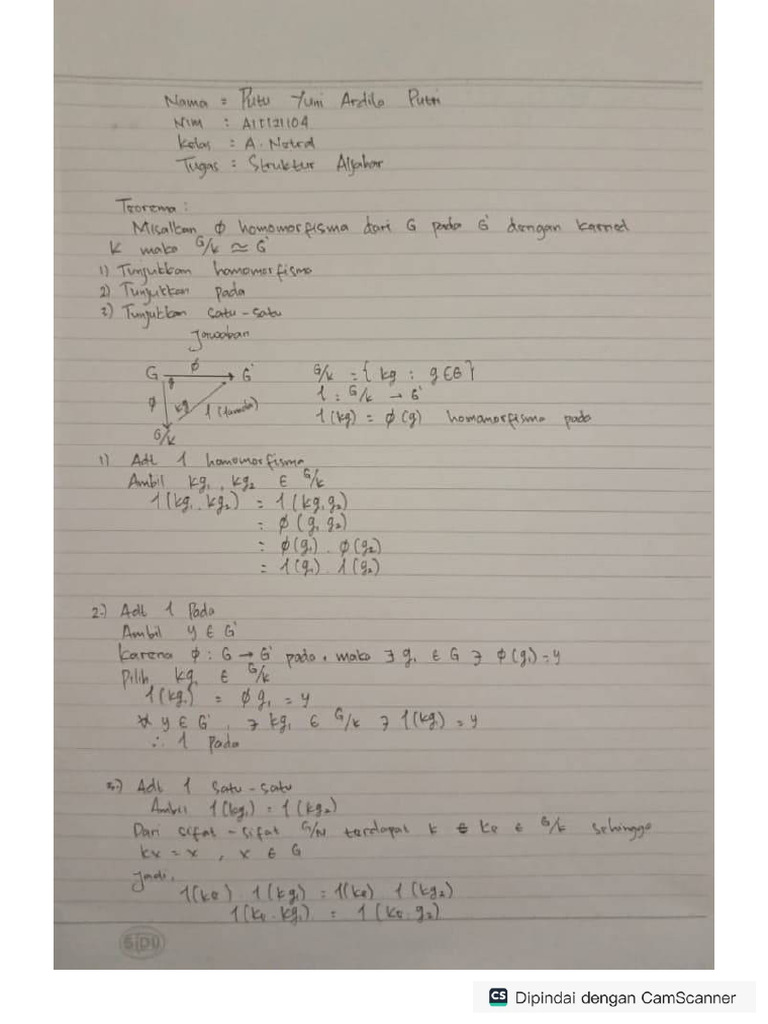 Nama = Putu Yuni Ardila Putri
NIM :
Kelas : A.
Tugas : Struktur Aljabar
Teorema :
Misalkan ϕ homomorfisma dari G pada G' dengan karnel
K maka G/k ≃ G'
1) Tunjukkan homomorfisma
2) Tunjukkan pada
3) Tunjukkan satu-satu
Jawaban
G ϕ G' G/k = { kg : g ∈ G }
ϕ kg 1 (lamda) 1 : G/k → G'
G/k 1(kg) = ϕ(g) homomorfisma pada
1) Adt 1 homomorfisma
Ambil kg₁, kg₂ ∈ G/k
1(kg₁ . kg₂) = 1(kg₁g₂)
= ϕ(g₁ g₂)
= ϕ(g₁) . ϕ(g₂)
= 1(g₁) . 1(g₂)
2.) Adt 1 Pada
Ambil y ∈ G'
Karena ϕ : G → G' pada, maka ∃ g₁ ∈ G ∋ ϕ(g₁) = y
Pilih kg₁ ∈ G/k
1(kg₁) = ϕ g₁ = y
∀ y ∈ G', ∃ kg₁ ∈ G/k ∋ 1(kg₁) = y
∴ 1 Pada
3.) Adt 1 Satu-satu
Ambil 1(kg₁) = 1(kg₂)
Dari sifat-sifat G/N terdapat ke ∈ G/k sehingga
kx = x, x ∈ G
Jadi,
1(ke) . 1(kg₁) = 1(ke) 1(kg₂)
1(ke . kg₁) = 1(ke . g₂)
SiDU
CS Dipindai dengan CamScanner